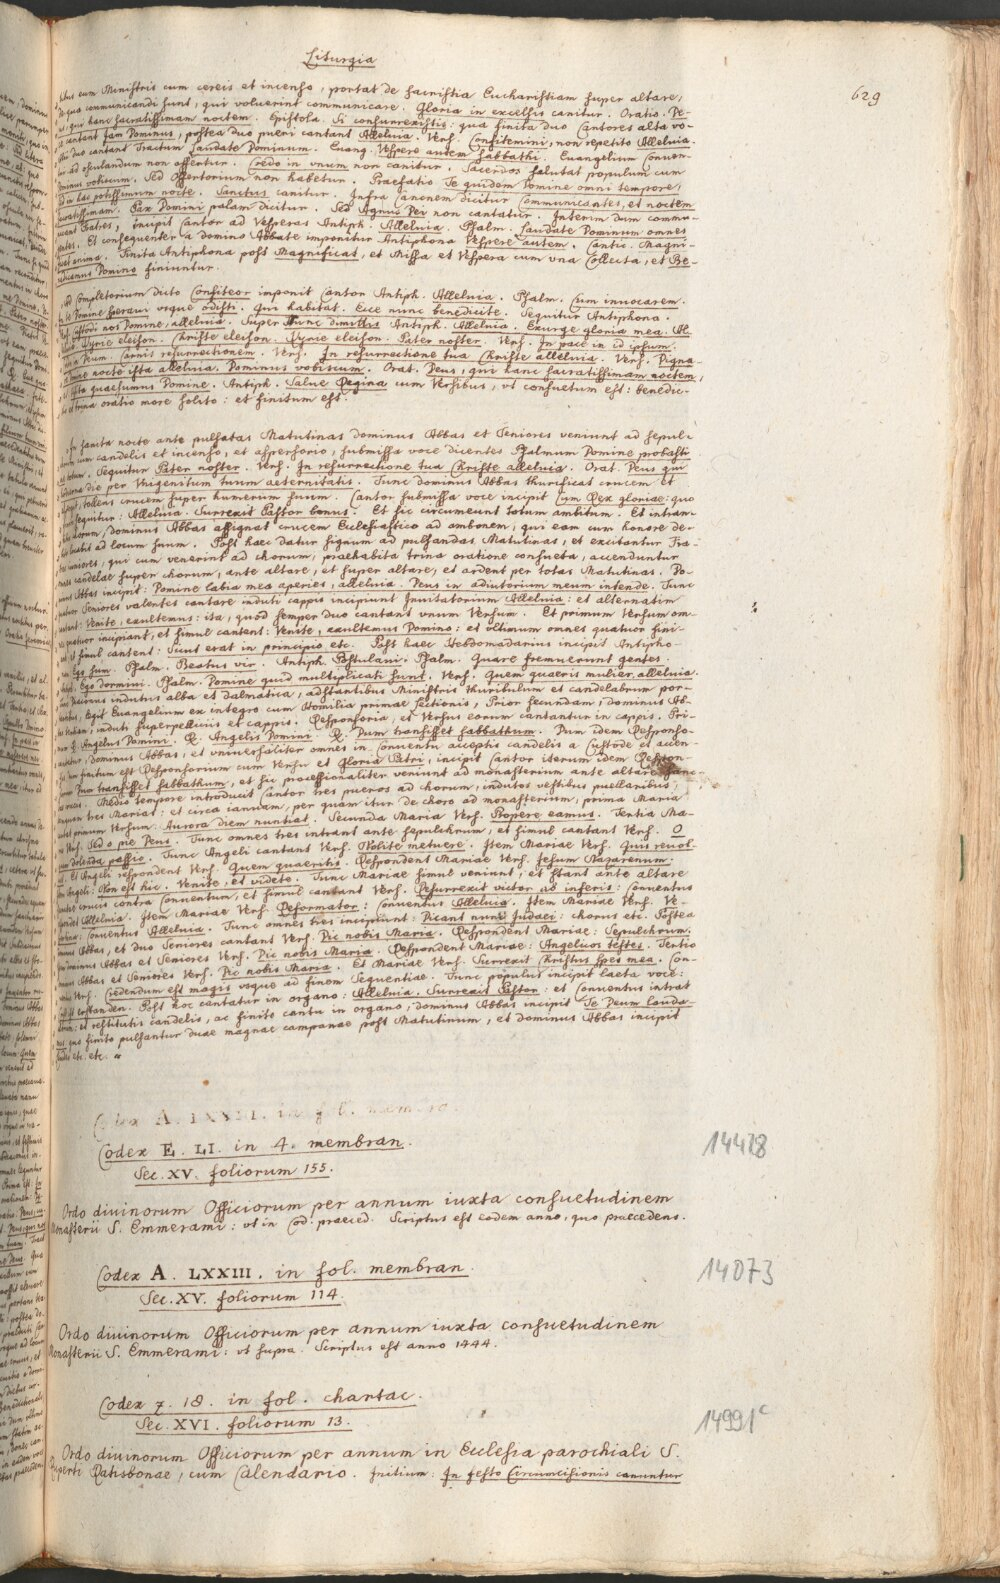 Liturgia
629
bus cum Ministris cum cereis et incenso, portat de sacristia Eucharistiam super altare,
de qua communicandi sunt, qui voluerint communicare. Gloria in excelsis canitur. Oratio. De-
us, qui hanc sacratissimam noctem. Epistola. Si consurrexistis: qua finita duo Cantores alta vo-
ce cantant Jam Dominus, postea duo pueri cantant Alleluia. Vers. Confitemini, non repetito Alleluia.
duo cantant Tractum Laudate Dominum. Euang. Vespere autem sabbathi. Euangelium Conuen-
ad osculandum non offertur. Credo in vnum non canitur. Sacerdos salutat populum cum
Dominus vobiscum. Sed Offertorium non habetur. Praefatio Te quidem Domine omni tempore,
in hac potissimum nocte. Sanctus canitur. Infra Canonem dicitur Communicantes, et noctem
sacratissimam. Pax Domini palam dicitur. Sed Agnus Dei non cantatur. Interim dum commu-
nicant fratres, incipit Cantor ad Vesperas Antiph. Alleluia. Psalm. Laudate Dominum omnes
gentes. Et consequenter a domino Abbate imponitur Antiphona Vespere autem. Cantic. Magni-
ficat anima. Finita Antiphona post Magnificat, et Missa et Vespera cum vna Collecta, et Be-
nedicamus Domino finiuntur.
Ad Completorium dicto Confiteor imponit Cantor Antiph. Alleluia. Psalm. Cum inuocarem.
In te Domine speraui vsque odisti. Qui habitat. Ecce nunc benedicite. Sequitur Antiphona.
Custodi nos Domine, alleluia. Super Nunc dimittis Antiph. Alleluia. Exurge gloria mea. Al-
Kyrie eleison. Christe eleison. Kyrie eleison. Pater noster. Vers. In pace in id ipsum.
in Deum. Carnis resurrectionem. Vers. In resurrectione tua Christe alleluia. Vers. Digna-
re Domine nocte ista alleluia. Dominus vobiscum. Orat. Deus, qui hanc sacratissimam noctem,
Visita quaesumus Domine. Antiph. Salue Regina cum Versibus, vt consuetum est: benedic-
trina oratio more solito: et finitum est.
In sancta nocte ante pulsatas Matutinas dominus Abbas et Seniores veniunt ad sepul-
crum cum candelis et incenso, et aspersorio, submissa voce dicentes Psalmum Domine probasti
totum. Sequitur Pater noster. Vers. In resurrectione tua Christe alleluia. Orat. Deus qui
hodierna die per Vnigenitum tuum aeternitatis. Tunc dominus Abbas thurificat crucem et
tollens crucem super humerum suum. Cantor submissa voce incipit Cum Rex gloriae: quo
sequitur: Alleluia. Surrexit Pastor bonus. Et sic circumeunt totum ambitum. Et intran-
chorum, dominus Abbas assignat crucem Ecclesiastico ad ambonem, qui eam cum honore de-
ad locum suum. Post haec datur signum ad pulsandas Matutinas, et excitantur Fra-
iuniores, qui cum venerint ad chorum, praehabita trina oratione consueta, accenduntur
omnes candelae super chorum, ante altare, et super altare, et ardent per totas Matutinas. Do-
minus Abbas incipit: Domine labia mea aperies, alleluia. Deus in adiutorium meum intende. Tunc
quatuor Seniores valentes cantare induti cappis incipiunt Inuitatorium Alleluia: et alternatim
cantant: Venite, exultemus: ita, quod semper duo cantant vnum Versum. Et primum Versum om-
nes quatuor incipiant, et simul cantent: Venite, exultemus Domino: et vltimum omnes quatuor fini-
simul cantent: Sicut erat in principio etc. Post haec Hebdomadarius incipit Antipho-
Ego sum. Psalm. Beatus vir. Antiph. Postulaui. Psalm. Quare fremuerunt gentes.
Ego dormiui. Psalm. Domine quid multiplicati sunt. Vers. Quem quaeris mulier, alleluia.
Diaconus indutus alba et dalmatica, adstantibus Ministris thuribulum et candelabrum por-
tantibus, legit Euangelium ex integro cum Homilia primae lectionis, Prior secundam, dominus Ab-
bas tertiam, induti superpelliciis et cappis. Responsoria, et Versus eorum cantantur in cappis. Pri-
mum R. Angelus Domini. R. Angelis Domini. R. Dum transisset sabbathum. Dum idem Responso-
cantatur, dominus Abbas, et vniuersaliter omnes in Conuentu acceptis candelis a Custode et accen-
finitum est Responsorium cum Versu et Gloria Patri, incipit Cantor iterum idem Respon-
sorium Dum transisset sabbathum, et sic processionaliter veniunt ad monasterium ante altare
Medio tempore introducit Cantor tres pueros ad chorum, indutos vestibus puellaribus,
tres Mariae: et circa ianuam, per quam itur de choro ad monasterium, prima Maria
primum Versum: Aurora diem nuntiat. Secunda Maria Vers. Propere eamus. Tertia Ma-
ria Vers. Sed o pie Deus. Tunc omnes tres intrant ante sepulchrum, et simul cantant Vers. O
quam dolenda passio. Tunc Angeli cantant Vers. Nolite metuere. Item Mariae Vers. Quis reuol-
Et Angeli respondent Vers. Quem quaeritis. Respondent Mariae Vers. Jesum Nazarenum.
Item Angeli: Non est hic. Venite, et videte. Tunc Mariae simul veniunt, et stant ante altare
crucis contra Conuentum, et simul cantant Vers. Resurrexit victor ab inferis: Conuentus
Alleluia. Item Mariae Vers. Reformator: Conuentus Alleluia. Item Mariae Vers. Ve-
Conuentus Alleluia. Tunc omnes tres incipiunt: Dicant nunc Judaei: chorus etc. Postea
dominus Abbas, et duo Seniores cantant Vers. Dic nobis Maria. Respondent Mariae: Sepulchrum.
dominus Abbas et Seniores Vers. Dic nobis Maria. Respondent Mariae: Angelicos testes. Tertio
dominus Abbas et Seniores Vers. Dic nobis Maria. Et Mariae Vers. Surrexit Christus spes mea. Con-
uentus Vers. Credendum est magis vsque ad finem Sequentiae. Tunc populus incipit laeta voce:
Christ ist erstanden. Post hoc cantatur in organo: Alleluia. Surrexit Pastor: et Conuentus intrat
chorum: et restitutis candelis, ac finito cantu in organo, dominus Abbas incipit Te Deum lauda-
mus, quo finito pulsantur duae magnae campanae post Matutinum, et dominus Abbas incipit
Laudes etc. etc.
Codex A. LXXIII. in fol. membro.
Codex E. LI. in 4. membran.
14428
Sec. XV. foliorum 155.
Ordo diuinorum Officiorum per annum iuxta consuetudinem
Monasterii S. Emmerami: vt in Cod. praeced. Scriptus est eodem anno, quo praecedens.
Codex A. LXXIII. in fol. membran.
14073
Sec. XV. foliorum 114.
Ordo diuinorum Officiorum per annum iuxta consuetudinem
Monasterii S. Emmerami: vt supra. Scriptus est anno 1444.
Codex 7. 18. in fol. chartac.
Sec. XVI. foliorum 13.
14991c
Ordo diuinorum Officiorum per annum in Ecclesia parochiali S.
Ruperti Ratisbonae, cum Calendario. Initium: In festo Circumcisionis canuntur